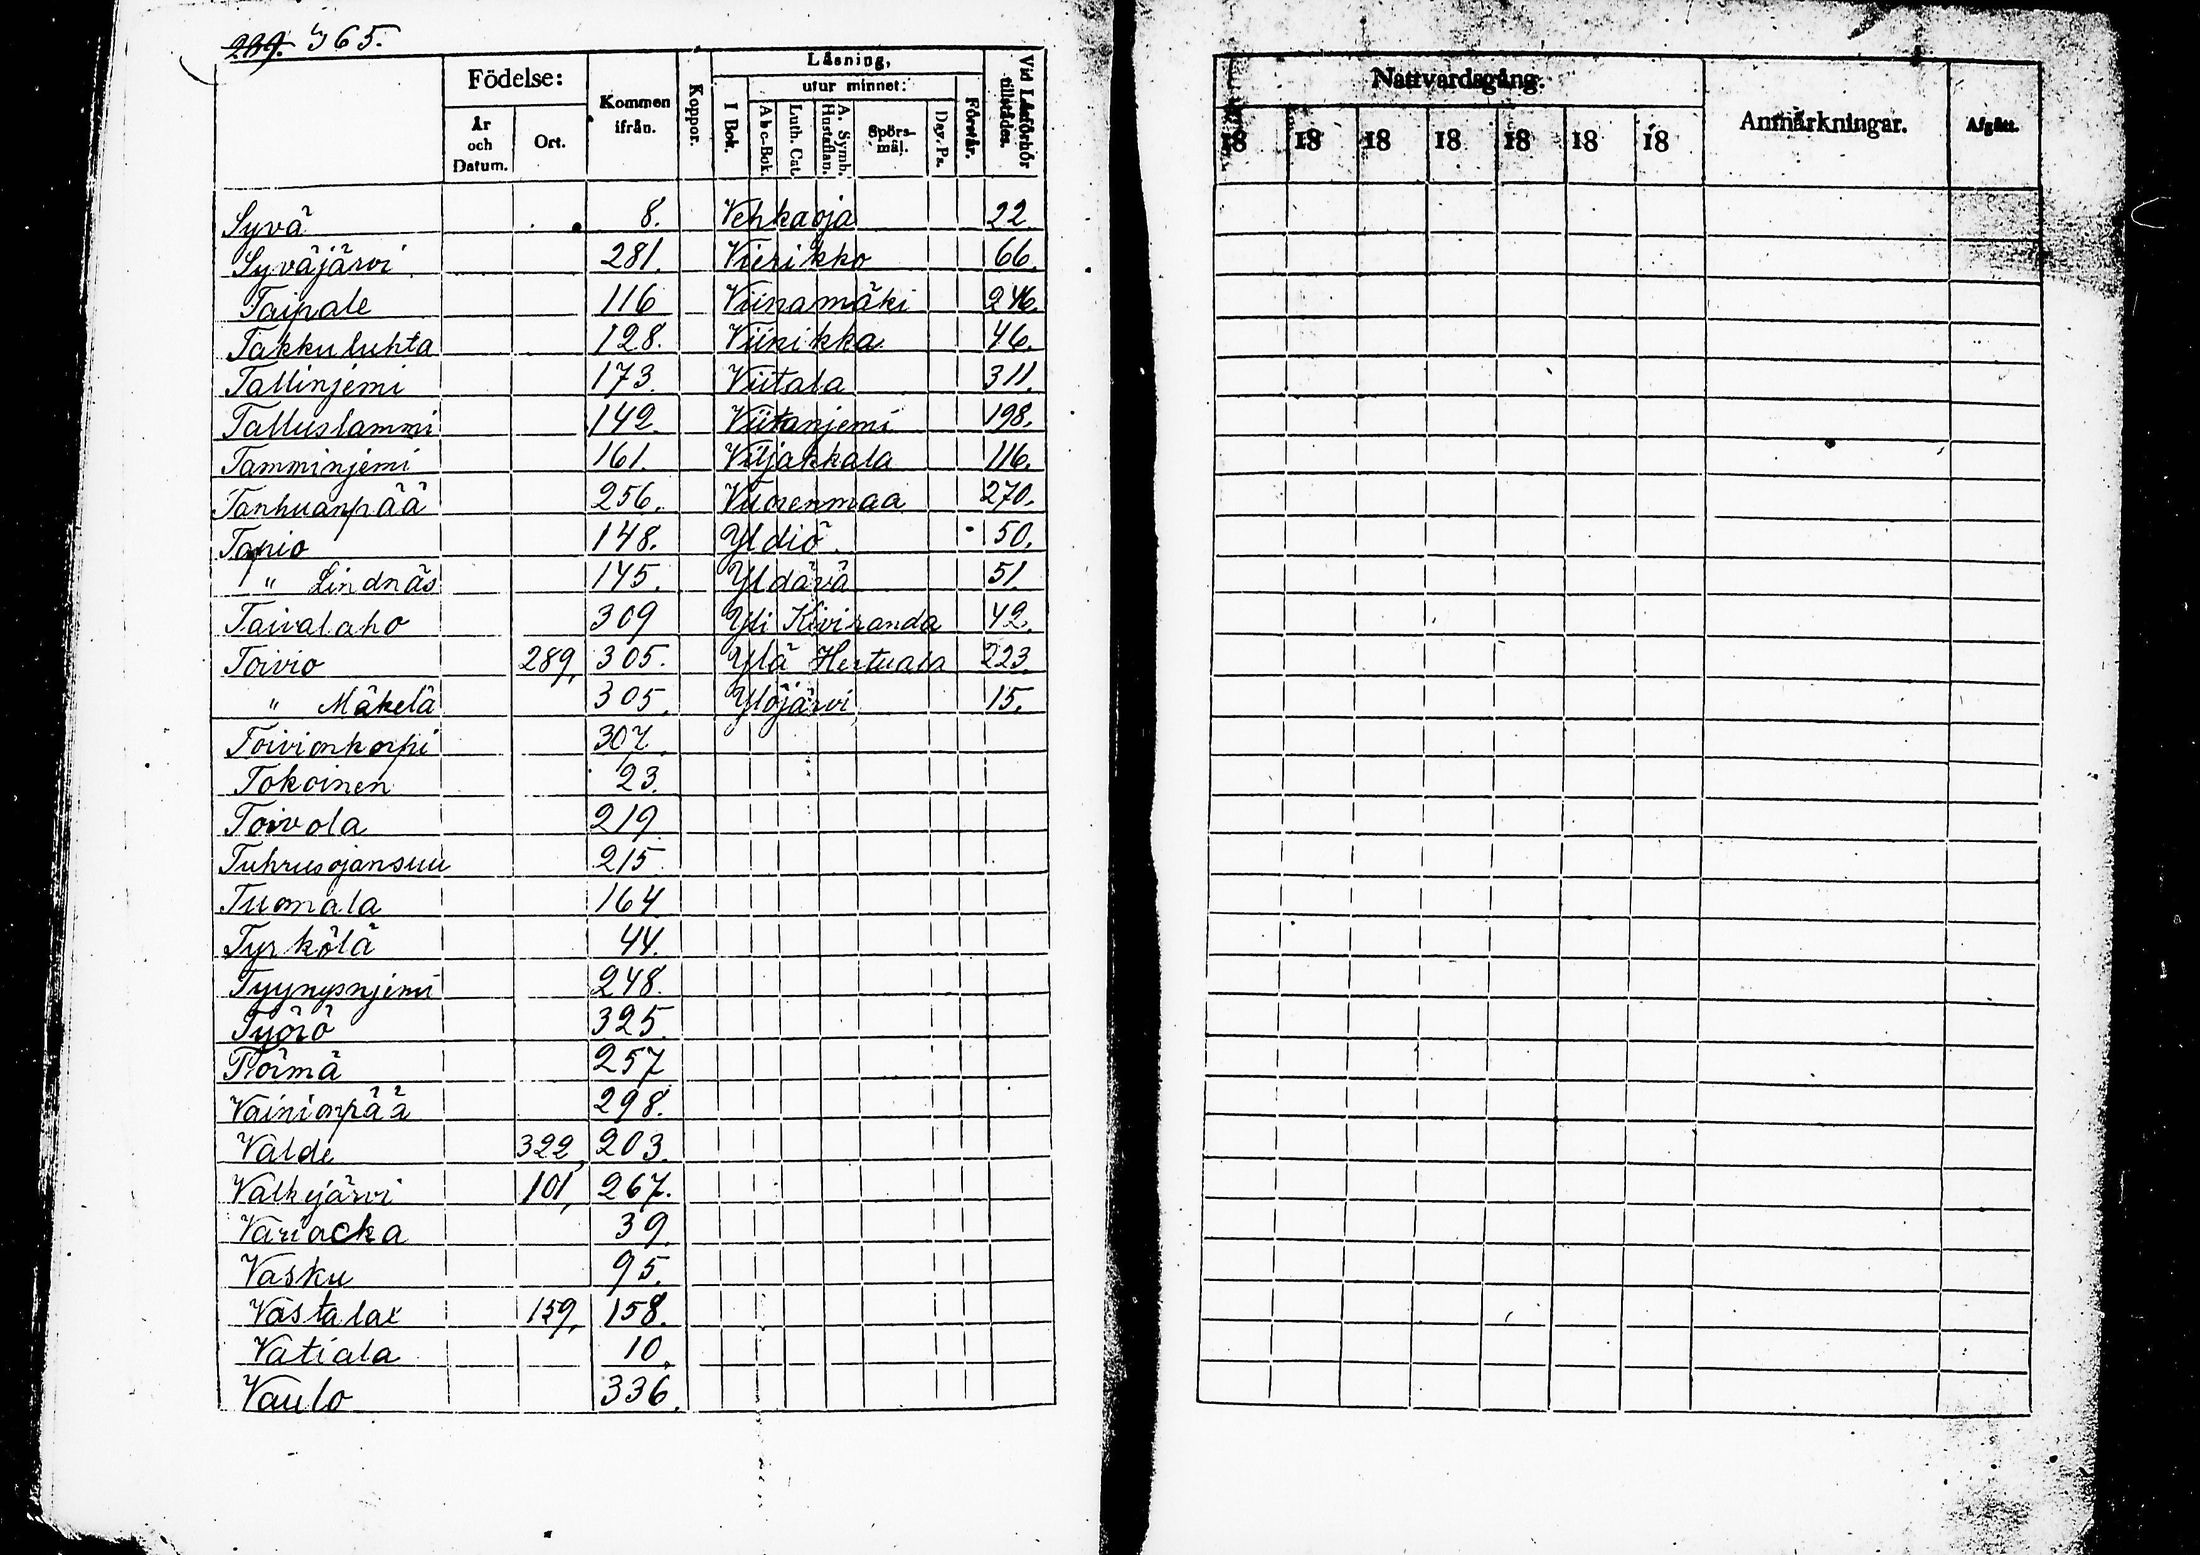 289. 365.
Födelse:
År och Datum.
Ort.
Kommen ifrån.
Koppor.
Läsning,
utur minnet:
I Bok.
Abc-Bok.
Luth. Cat.
A. Symb. Hustaflan.
Spörs-mål.
Dav. Ps.
Förstår.
Vid Läsförhör tillstädes.
Nattvardsgång.
18 18 18 18 18 18 18
Anmärkningar.
Afgått.
Syvä 8. Vehkaoja 22.
Syväjärvi 281. Vierikko 66.
Taipale 116 Viinamäki 246.
Takkuluhta 128. Viinikka 46.
Tallinjemi 173. Viitala 311.
Talluslammi 142. Viitanjemi 198.
Tamminjemi 161. Viljakkala 116.
Tanhuanpää 256. Vuorenmaa 270.
Tapio 148. Yldiö 50.
" Lindnäs 145. Yldävä 51.
Taivalaho 309 Yli Kiviranda 42.
Toivio 289, 305. Ylä Hertuala 223.
" Mäkelä 305. Ylöjärvi 15.
Toivionkorpi 307.
Tokoinen 23.
Toivola 219.
Tuhrusojansuu 215.
Tuomala 164
Tyrkölä 44.
Tyynysnjemi 248.
Työrö 325.
Törmä 257
Vainionpää 298.
Valde 322, 203.
Valkejärvi 101, 267.
Variacka 39.
Vasku 95.
Vastalax 159, 158.
Vatiala 10.
Vaulo 336.